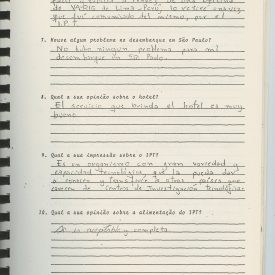 de VARIG de Lima-Perú, lo retiré una vez
que fui comunicado del mismo, por el
I.P.T.
7. Houve algum problema no desembarque em São Paulo?
No hubo ningun problema para mi
desembarque en São Paulo.
8. Qual a sua opinião sobre o hotel?
El servicio que brinda el hotel es muy
bueno
9. Qual a sua impressão sobre o IPT?
Es un organismo con gran variedad y
capacidad tecnológica, que la puede dar
a conocer y transferir a otros países que
carecen de Centros de Investigación tecnológicas
10. Qual a sua opinião sobre a alimentação do IPT?
Es aceptable y completa